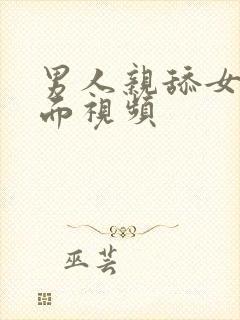 男人親舔女
而視頻
巫芸